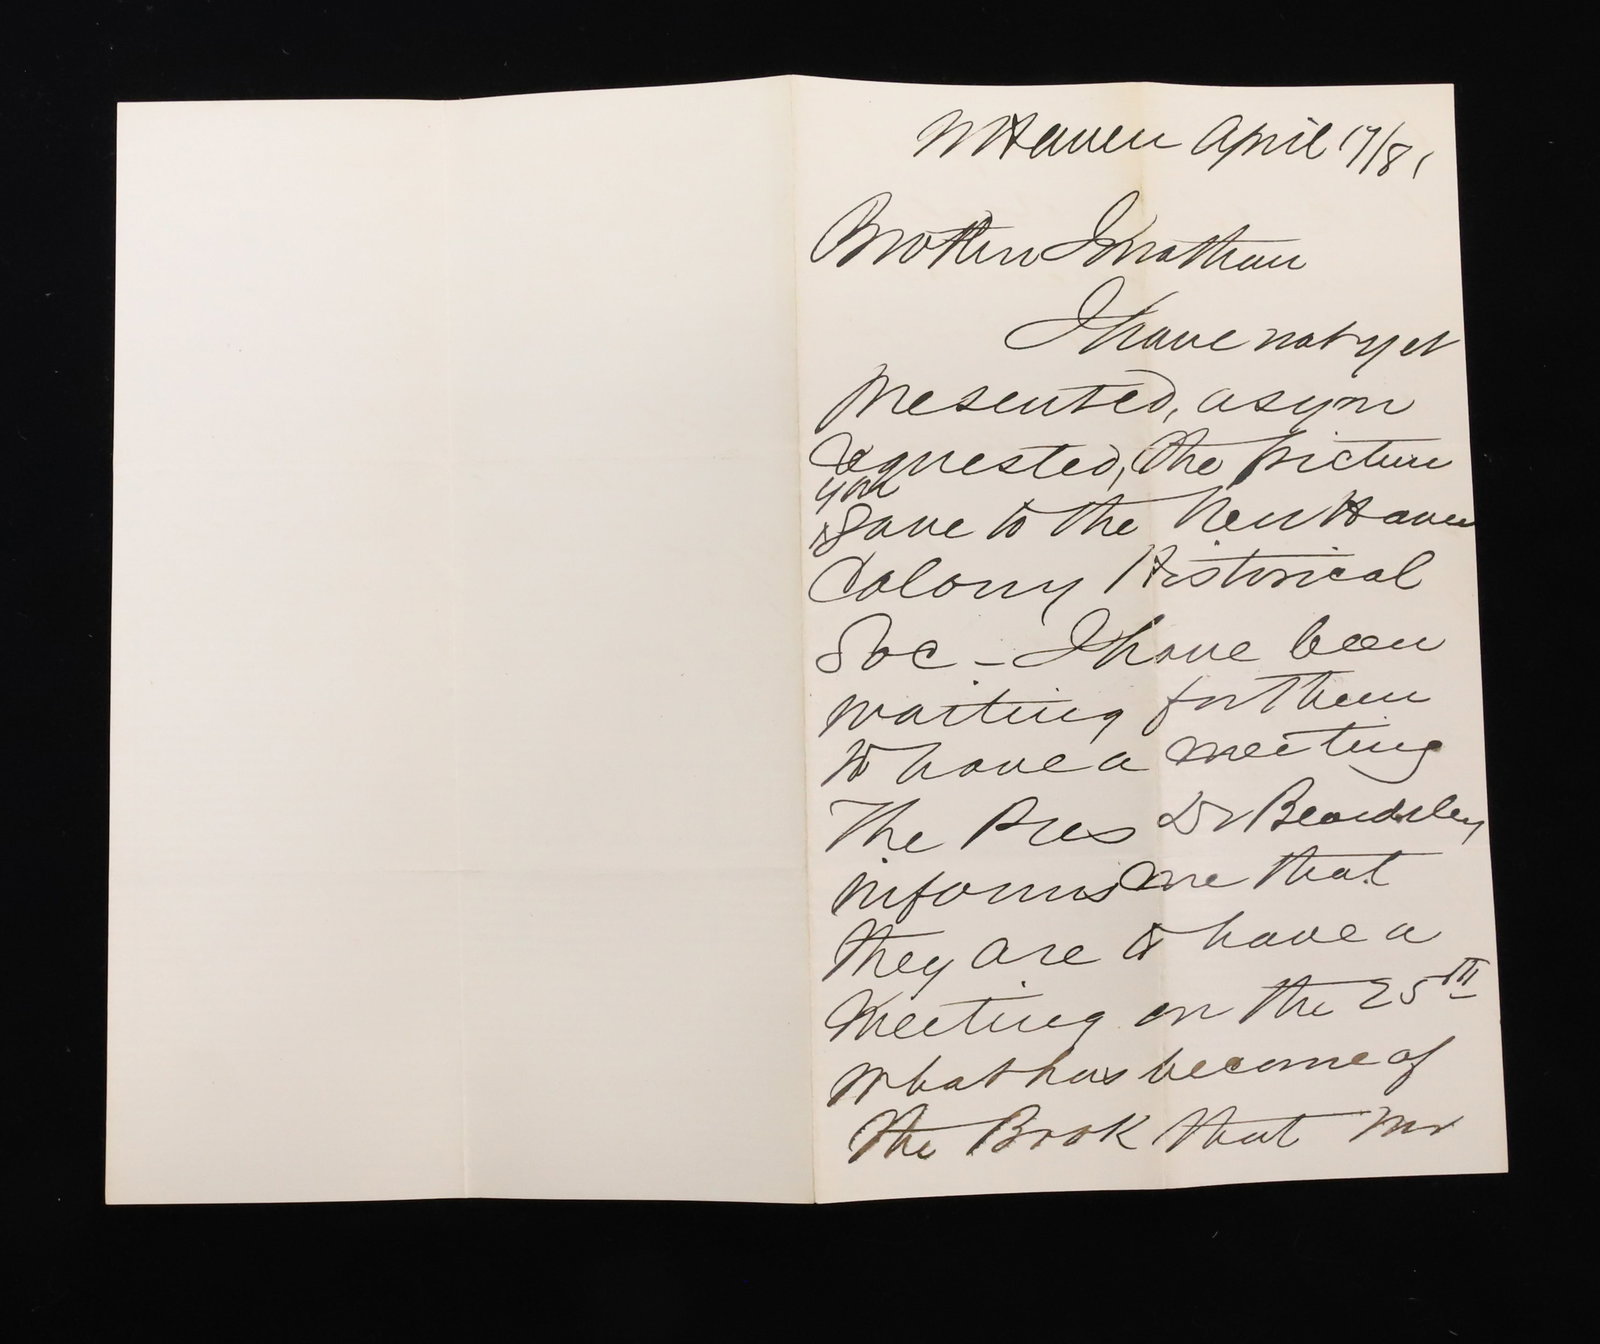 N Haven April 17/81
Brother Jonathan
I have not yet
presented, as you
requested, the picture
you
gave to the New Haven
Colony Historical
Soc - I have been
waiting for them
to have a meeting
The Pres Dr Beardsley
informs me that
they are to have a
meeting on the 25th
what has become of
the Book that Mr